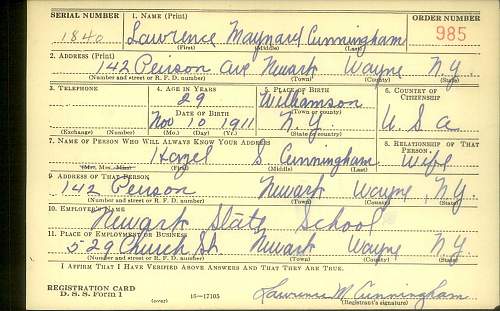 SERIAL NUMBER 1. NAME (Print) ORDER NUMBER
1840 Lawrence Maynard Cunningham 985
(First) (Middle) (Last)
2. ADDRESS (Print)
142 Peirson Ave Newark Wayne N.Y.
(Number and street or R. F. D. number) (Town) (County) (State)
3. TELEPHONE 4. AGE IN YEARS 5. PLACE OF BIRTH 6. COUNTRY OF CITIZENSHIP
29 Williamson
DATE OF BIRTH (Town or county)
Nov 10 1911 N.Y. U.S.A
(Exchange) (Number) (Mo.) (Day) (Yr.) (State or country)
7. NAME OF PERSON WHO WILL ALWAYS KNOW YOUR ADDRESS 8. RELATIONSHIP OF THAT PERSON
Hazel S Cunningham Wife
(Mr., Mrs., Miss) (First) (Middle) (Last)
9. ADDRESS OF THAT PERSON
142 Peirson Newark Wayne N.Y.
(Number and street or R. F. D. number) (Town) (County) (State)
10. EMPLOYER'S NAME
Newark State School
11. PLACE OF EMPLOYMENT OR BUSINESS
529 Church St. Newark Wayne N.Y.
(Number and street or R. F. D. number) (Town) (County) (State)
I AFFIRM THAT I HAVE VERIFIED ABOVE ANSWERS AND THAT THEY ARE TRUE.
REGISTRATION CARD
D. S. S. Form 1 (over) 16—17105 Lawrence M. Cunningham
(Registrant's signature)